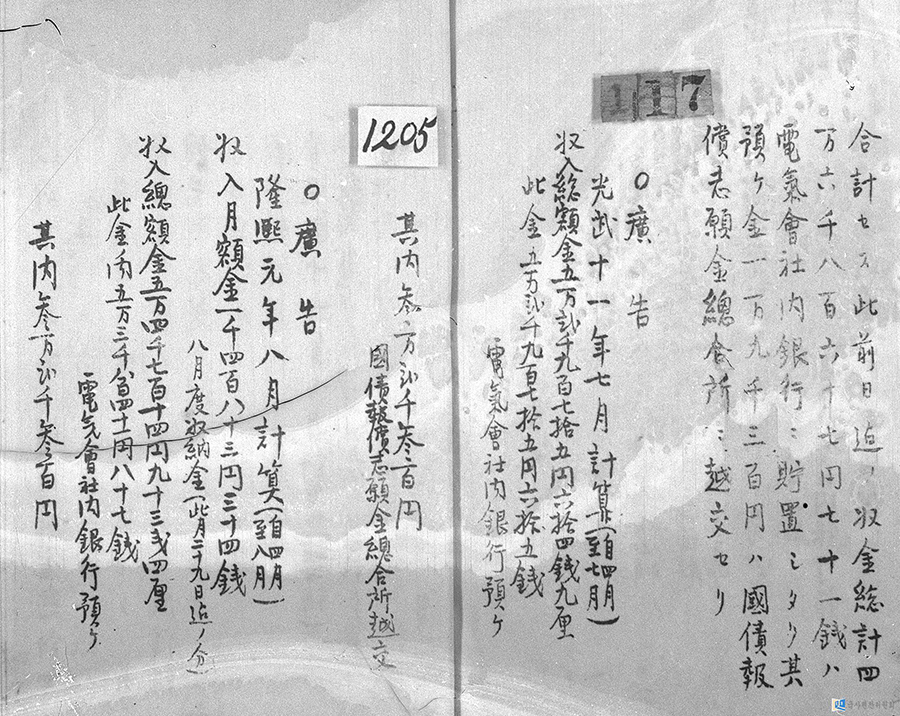 117
合計セハ此前日迄ノ收金総計四
万六千八百六十七円七十一銭ハ
電氣會社内銀行ニ貯置シタリ其
預ケ金一万九千三百円ハ國債報
償志願金總合所ニ越交セリ
○廣告
光武十一年七月計算(自四月至七月)
収入総額金五万弐千九百七拾五円六拾四銭九厘
此金五万弐千九百七拾五円六拾五銭
電氣會社内銀行預ケ
其内参万弐千参百円
國債報償志願金總合所越交
1205
○廣告
隆熙元年八月計算(自四月至八月)
収入月額金一千四百八十三円三十四銭
八月度収納金(此月二十九日迄ノ分)
収入總額金五万四千七百十四円九十三戋四厘
此金ノ内五万三千八百四十円八十七銭
電気會社内銀行預ケ
其内参万弐千参百円